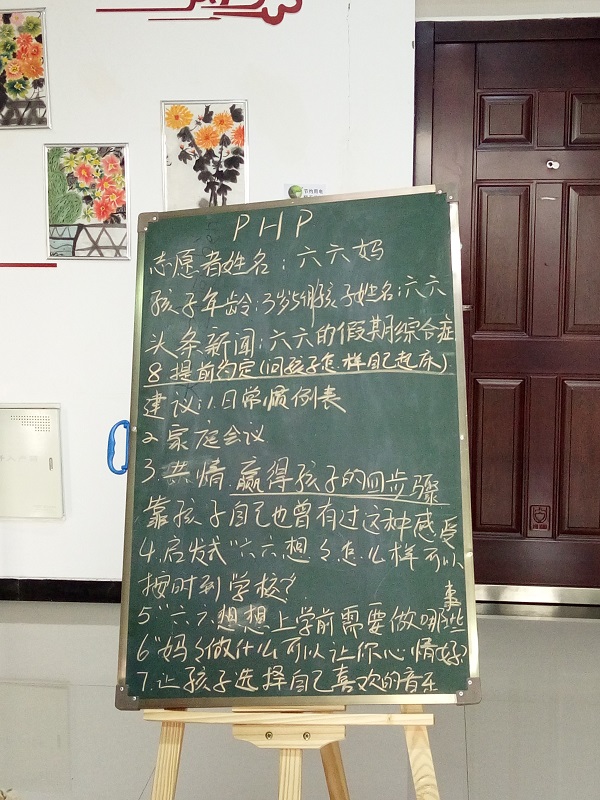 PHP
志愿者姓名：六六妈
孩子年龄：3岁5个月孩子姓名：六六
头条新闻：六六的假期综合症
8提前约定(问孩子怎样自己起床)
建议：1.日常惯例表
2家庭会议
3.共情.赢得孩子的四步骤
靠孩子自己也曾有过这种感受
4.启发式"六六想々怎么样可以
按时到学校？
5"六六想想上学前需要做哪些
事
6"妈々做什么可以让你心情好
7.让孩子选择自己喜欢的音乐
节约用电